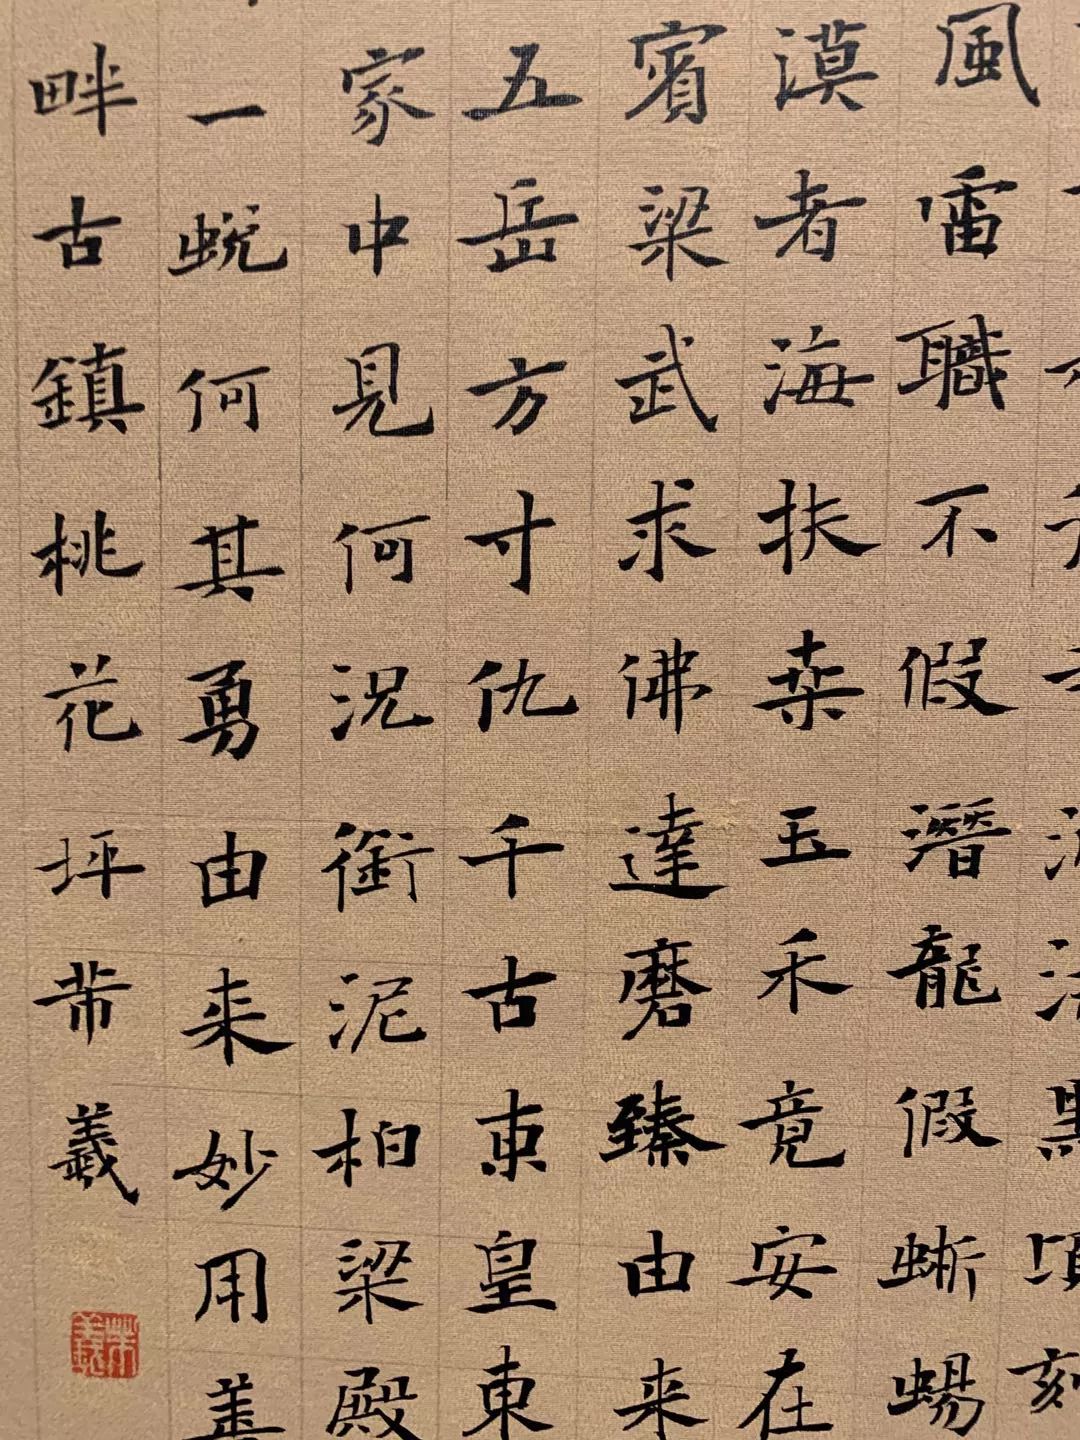 項刻
風雷職不假潛龍假蜥蜴
漠者海扶桒玉禾竟安在
賓梁武求佛達磨臻由来
五岳方寸仇千古東皇東
家中見何況銜泥柏梁殿
一蛻何其勇由来妙用善
畔古鎮桃花坪芾義